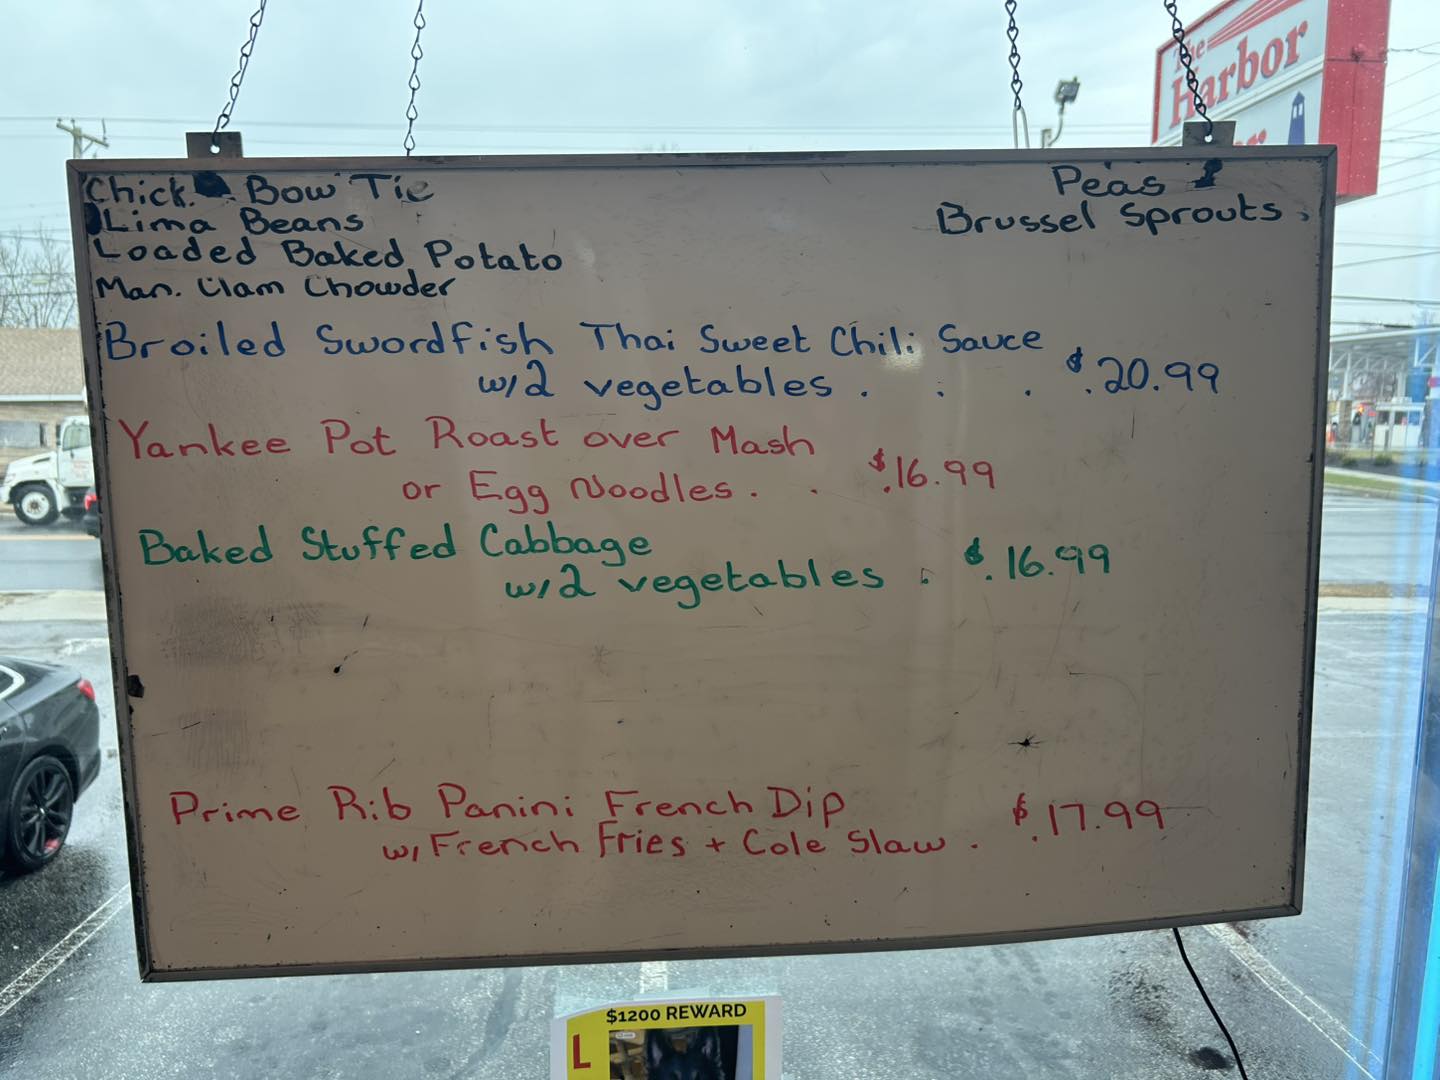 The
Harbor
Chick. Bow Tie
Lima Beans
Loaded Baked Potato
Man. Clam Chowder
Peas
Brussel Sprouts
Broiled Swordfish Thai Sweet Chili Sauce
w/2 vegetables . . . $.20.99
Yankee Pot Roast over Mash
or Egg Noodles . . $.16.99
Baked Stuffed Cabbage
w/2 vegetables . $.16.99
Prime Rib Panini French Dip
w/ French Fries + Cole Slaw . $.17.99
$1200 REWARD
L